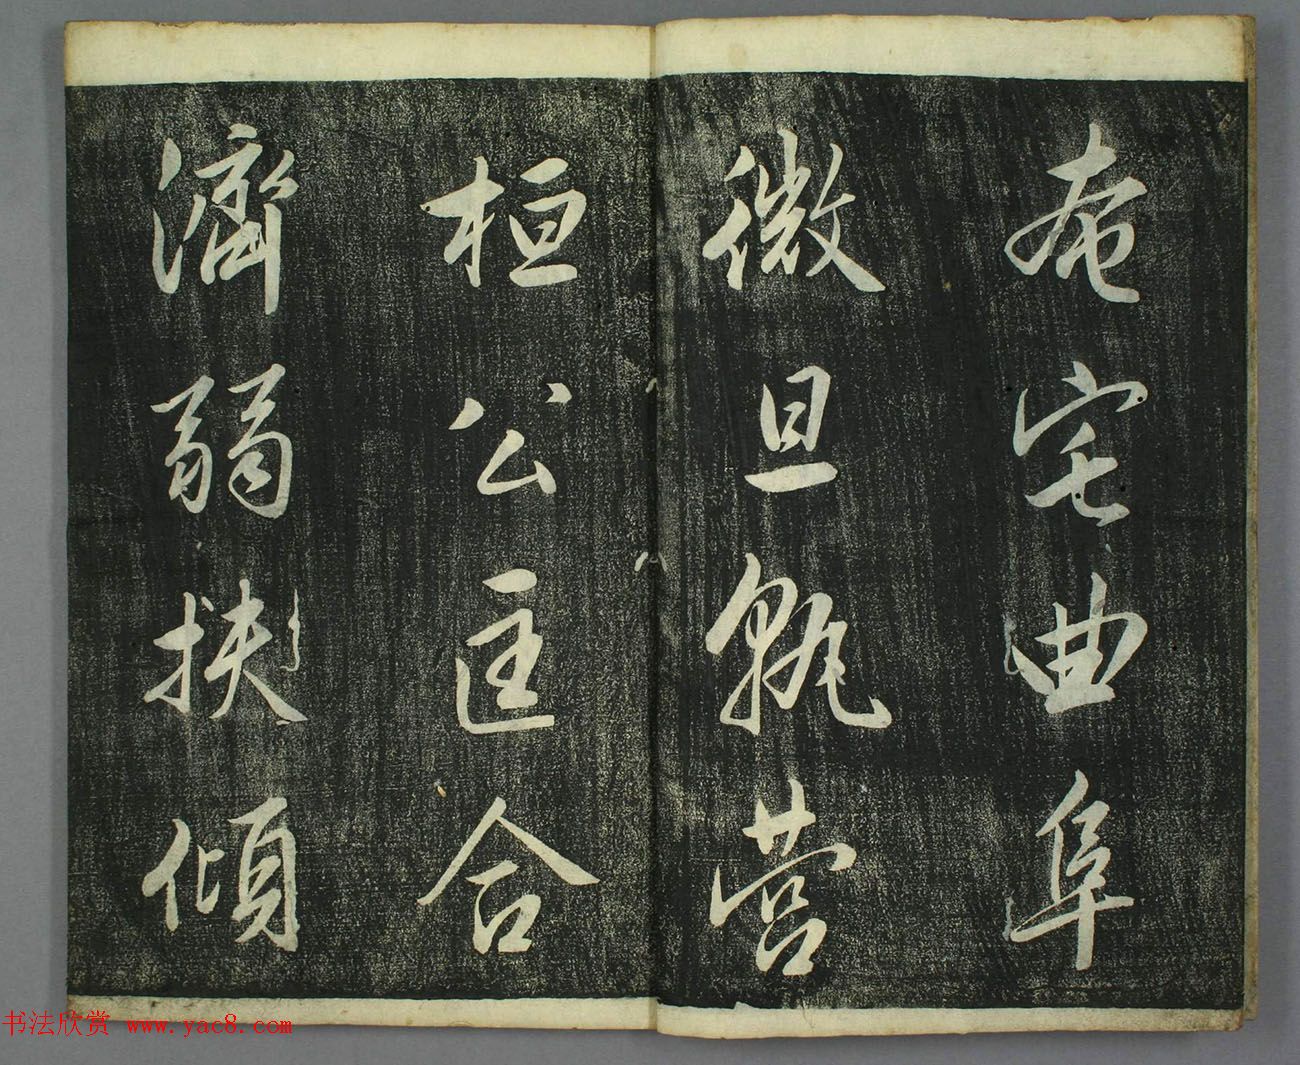 奄宅曲阜
微旦孰营
桓公匡合
濟弱扶傾
书法欣赏 www.yac8.com